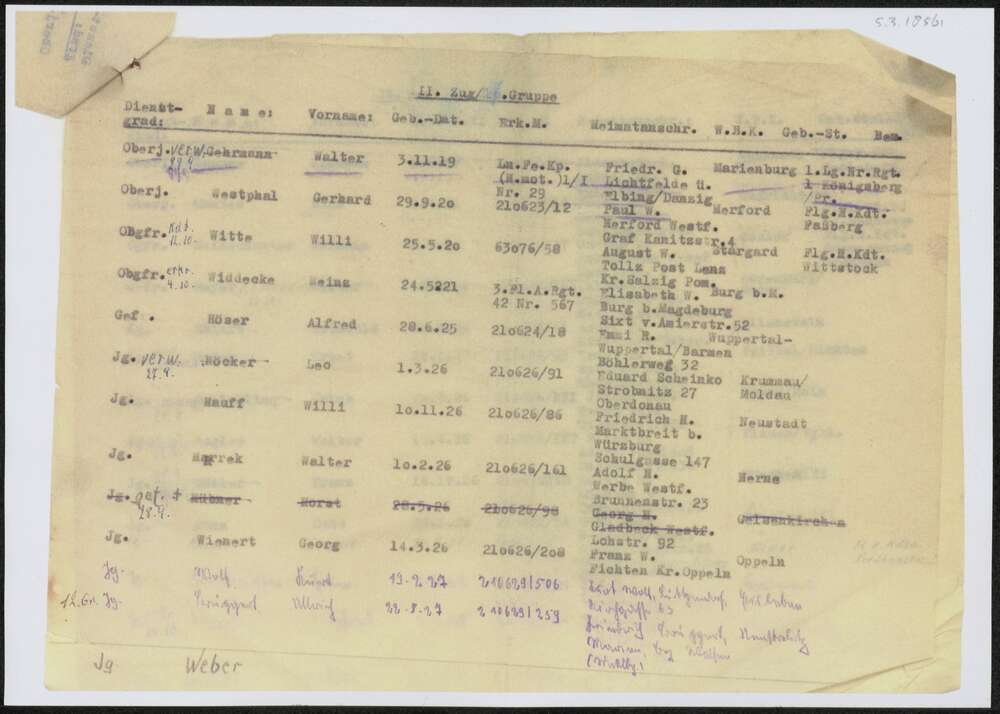 5.3.1856
II. Zug/ .Gruppe
Dienst-grad: Name: Vorname: Geb.-Dat. Erk.M. Heimatanschr. W.B.K. Geb.-St. Bem.
Oberj. verw. Gehrmann Walter 3.11.19 Ln.Fe.Kp. Friedr. G. Marienburg 1.Lg.Nr.Rgt.
(H.mot.)1/I Lichtfelde ü. 1 Königsberg
Nr. 29 Elbing/Danzig /Pr.
Oberj. Westphal Gerhard 29.9.20 21o623/12 Paul W. Herford Flg.H.Kdt.
Herford Westf. Faßberg
Graf Kanitzstr.4
OBgfr. Kdt. 11.10. Witte Willi 25.5.2o 63o76/58 August W. Stargard Flg.H.Kdt.
Tollz Post Lenz Wittstock
Kr.Salzig Pom.
Obgfr. 4.10. Widdecke Heinz 24.5221 3.Fl.A.Rgt. Elisabeth W. Burg b.M.
42 Nr. 567 Burg b.Magdeburg
Sixt v.Amierstr.52
Gef. Höser Alfred 28.6.25 21o624/18 Emmi R. Wuppertal-
Wuppertal/Barmen
Böhlerweg 32
Jg. verw. 27.9. Höcker Leo 1.3.26 21o626/91 Eduard Scheinko Krummau/
Strobnitz 27 Moldau
Oberdonau
Jg. Hauff Willi 1o.11.26 21o626/86 Friedrich H. Neustadt
Marktbreit b.
Würzburg
Schulgasse 147
Jg. Harrek Walter 1o.2.26 21o626/161 Adolf H. Herne
Herbe Westf.
Brunnenstr. 23
Jg. gef. + 28.9. Hübner Horst 28.5.26 21o626/98 Georg H. Gelsenkirchen
Gladbeck Westf.
Lohstr. 92
Jg. Wienert Georg 14.3.26 21o626/208 Franz W. Oppeln
Fichten Kr.Oppeln
Jg. Wolf Kurt 19.2.27 210629/506
12.Gr. Jg. Ullrich 22.8.27 210629/259
Jg Weber